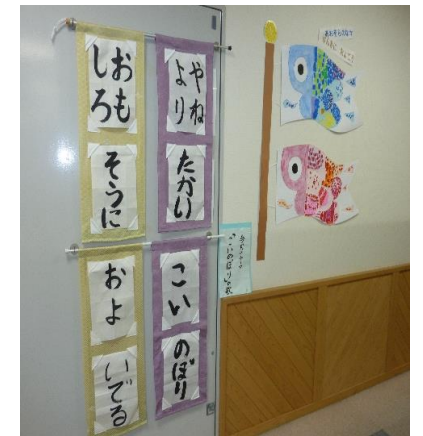 やね
より
たかい
こい
のぼり
おも
しろ
そうに
およ
いでる
「こいのぼり」の